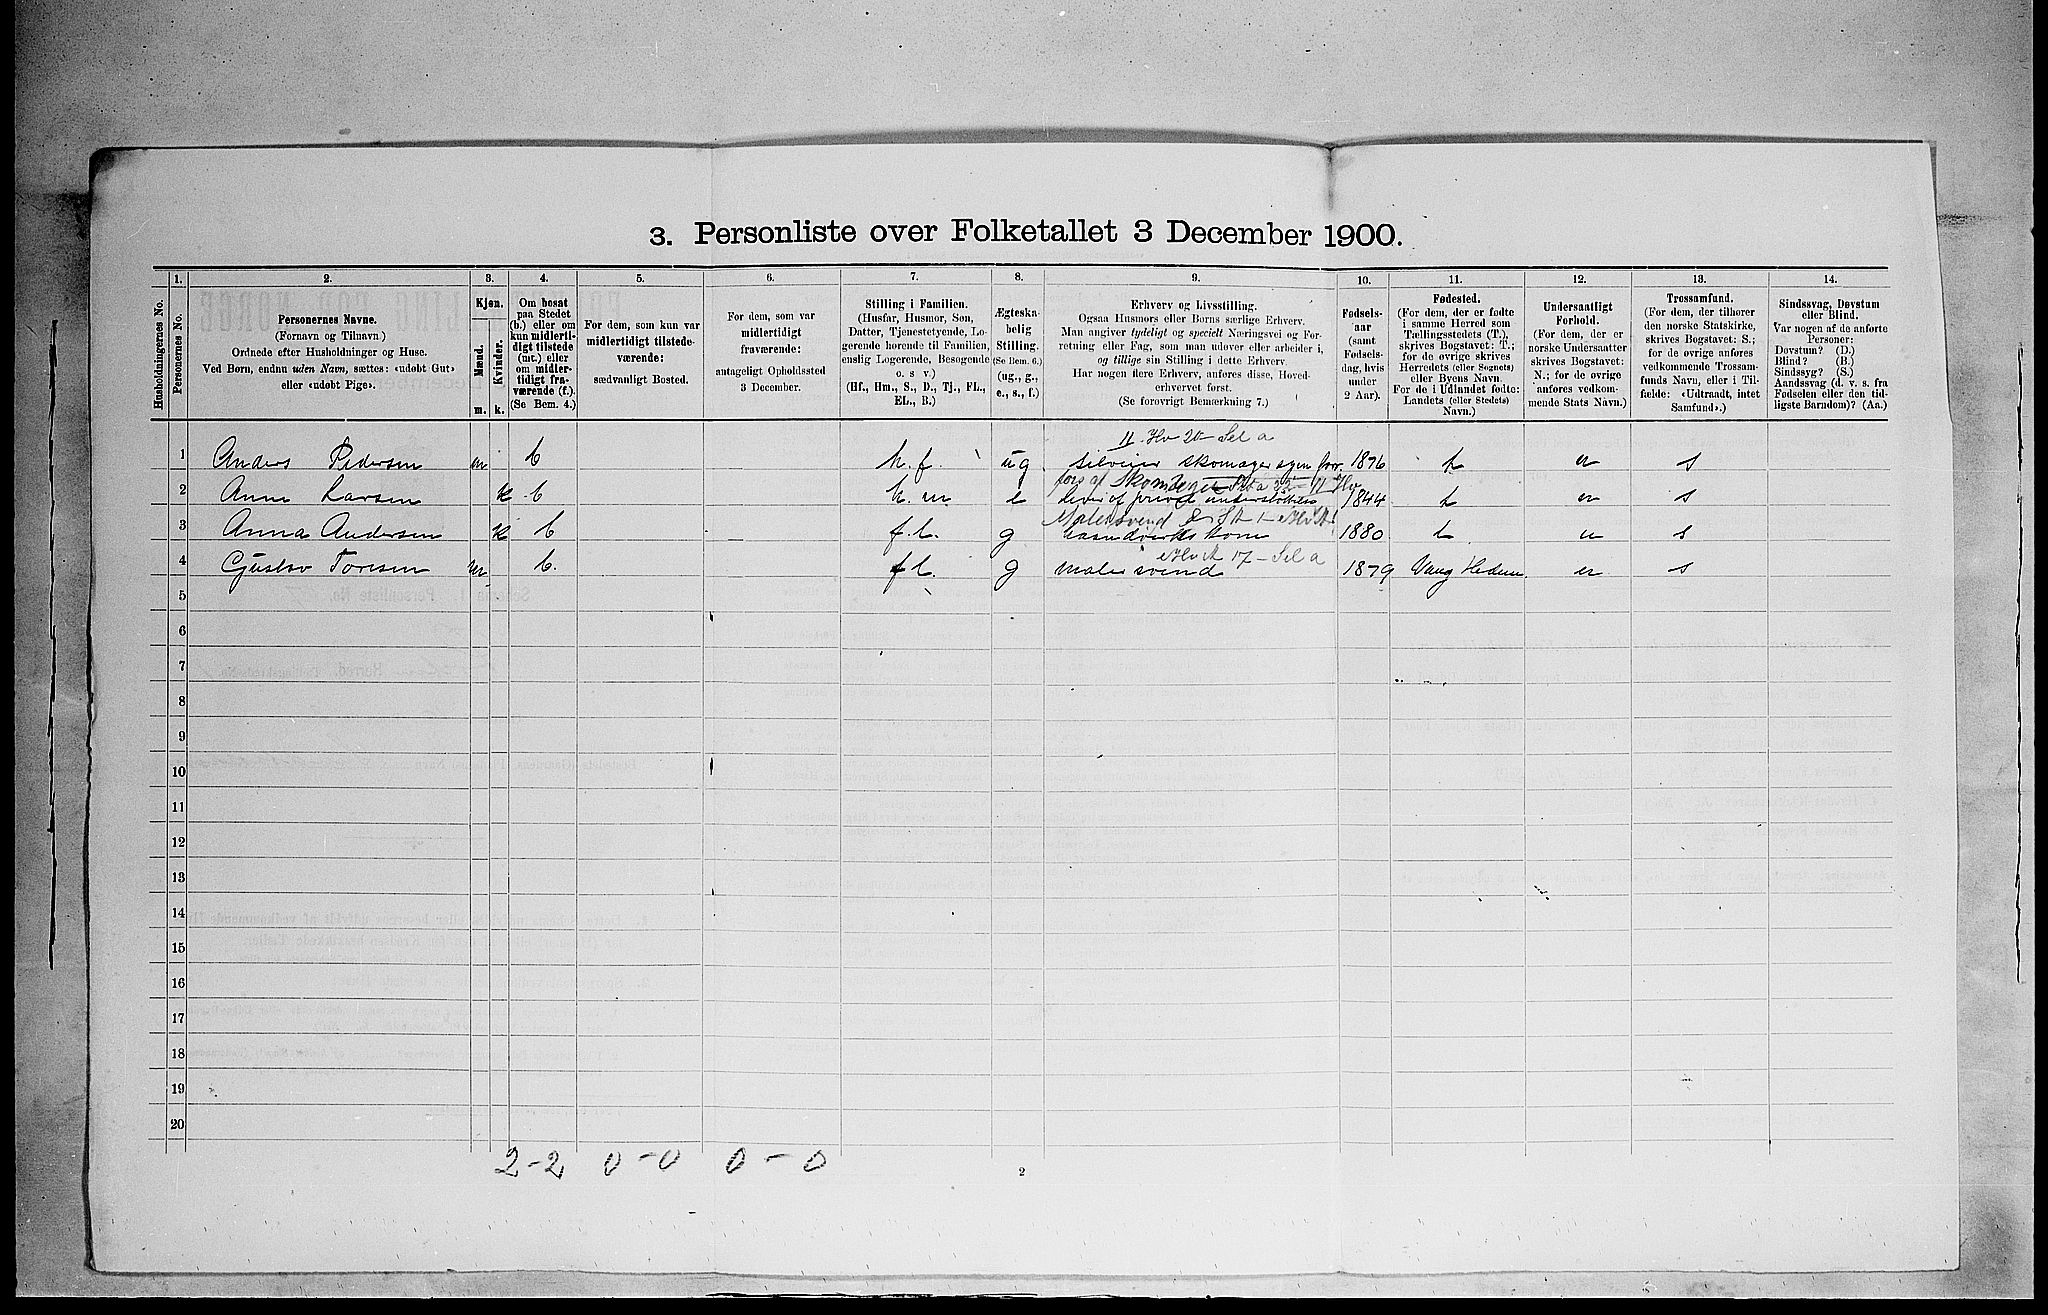 3. Personliste over Folketallet 3 December 1900.
1. 2. 3. 4. 5. 6. 7. 8. 9. 10. 11. 12. 13. 14.
Husholdningernes No.
Personernes No.
Personernes Navne.
(Fornavn og Tilnavn.)
Ordnede efter Husholdninger og Huse.
Ved Børn, endnu uden Navn, sættes: «udøbt Gut»
eller «udøbt Pige».
Kjøn.
Mænd.
Kvinder.
m. k.
Om bosat
paa Stedet
(b.) eller om
kun midlerti-
digt tilstede
(mt.) eller
om midler-
tidigt fra-
værende (f.).
(Se Bem. 4.)
For dem, som kun var
midlertidigt tilstede-
værende:
sædvanligt Bosted.
For dem, som var
midlertidigt
fraværende:
antageligt Opholdssted
3 December.
Stilling i Familien.
(Husfar, Husmor, Søn,
Datter, Tjenestetyende, Lo-
gerende hørende til Familien,
enslig Logerende, Besøgende
o. s. v.)
(Hf., Hm., S., D., Tj., FL.,
EL., B.)
Ægteska-
belig
Stilling.
(Se Bem. 6.)
(ug., g.,
e., s., f.)
Erhverv og Livsstilling.
Ogsaa Husmors eller Børns særlige Erhverv.
Man angiver tydeligt og specielt Næringsvei og For-
retning eller Fag, som man udøver eller arbeider i,
og tillige sin Stilling i dette Erhverv
Har nogen flere Erhverv, anføres disse, Hoved-
erhvervet først.
(Se forøvrigt Bemærkning 7.)
Fødsels-
aar
(samt
Fødsels-
dag, hvis
under
2 Aar).
Fødested.
(For dem, der er fødte
i samme Herred som
Tællingsstedets (T.),
skrives Bogstavet: T.;
for de øvrige skrives
Herredets (eller Sognets)
eller Byens Navn.
For de i Udlandet fødte:
Landets (eller Stedets)
Navn.)
Undersaatligt
Forhold.
(For dem, der er
norske Undersaatter
skrives Bogstavet:
N.; for de øvrige
anføres vedkom-
mende Stats Navn.)
Trossamfund.
(For dem, der tilhører
den norske Statskirke,
skrives Bogstavet: S.;
for de øvrige anføres
vedkommende Trossam-
funds Navn, eller i Til-
fælde: «Udtraadt, intet
Samfund».)
Sindssvag, Døvstum
eller Blind.
Var nogen af de anførte
Personer:
Døvstum? (D.)
Blind? (B.)
Sindssyg? (S.)
Aandssvag (d. v. s. fra
Fødselen eller den tid-
ligste Barndom)? (Aa.)
1 Anders Pedersen m b h.f. ug skomager egen 1876 t n s
2 Anne Larsen k b h.m e lever af privat understøttelse 1844 t n s
Malersvend
3 Anna Andersen k b f.l. g haandverks kone 1880 t n s
4 Gustav Toresen m b. f l. g malersvend 1879 Vang Hedem. n s
5
6
7
8
9
10
11
12
13
14
15
16
17
18
19
20
2-2 0-0 0-0
2